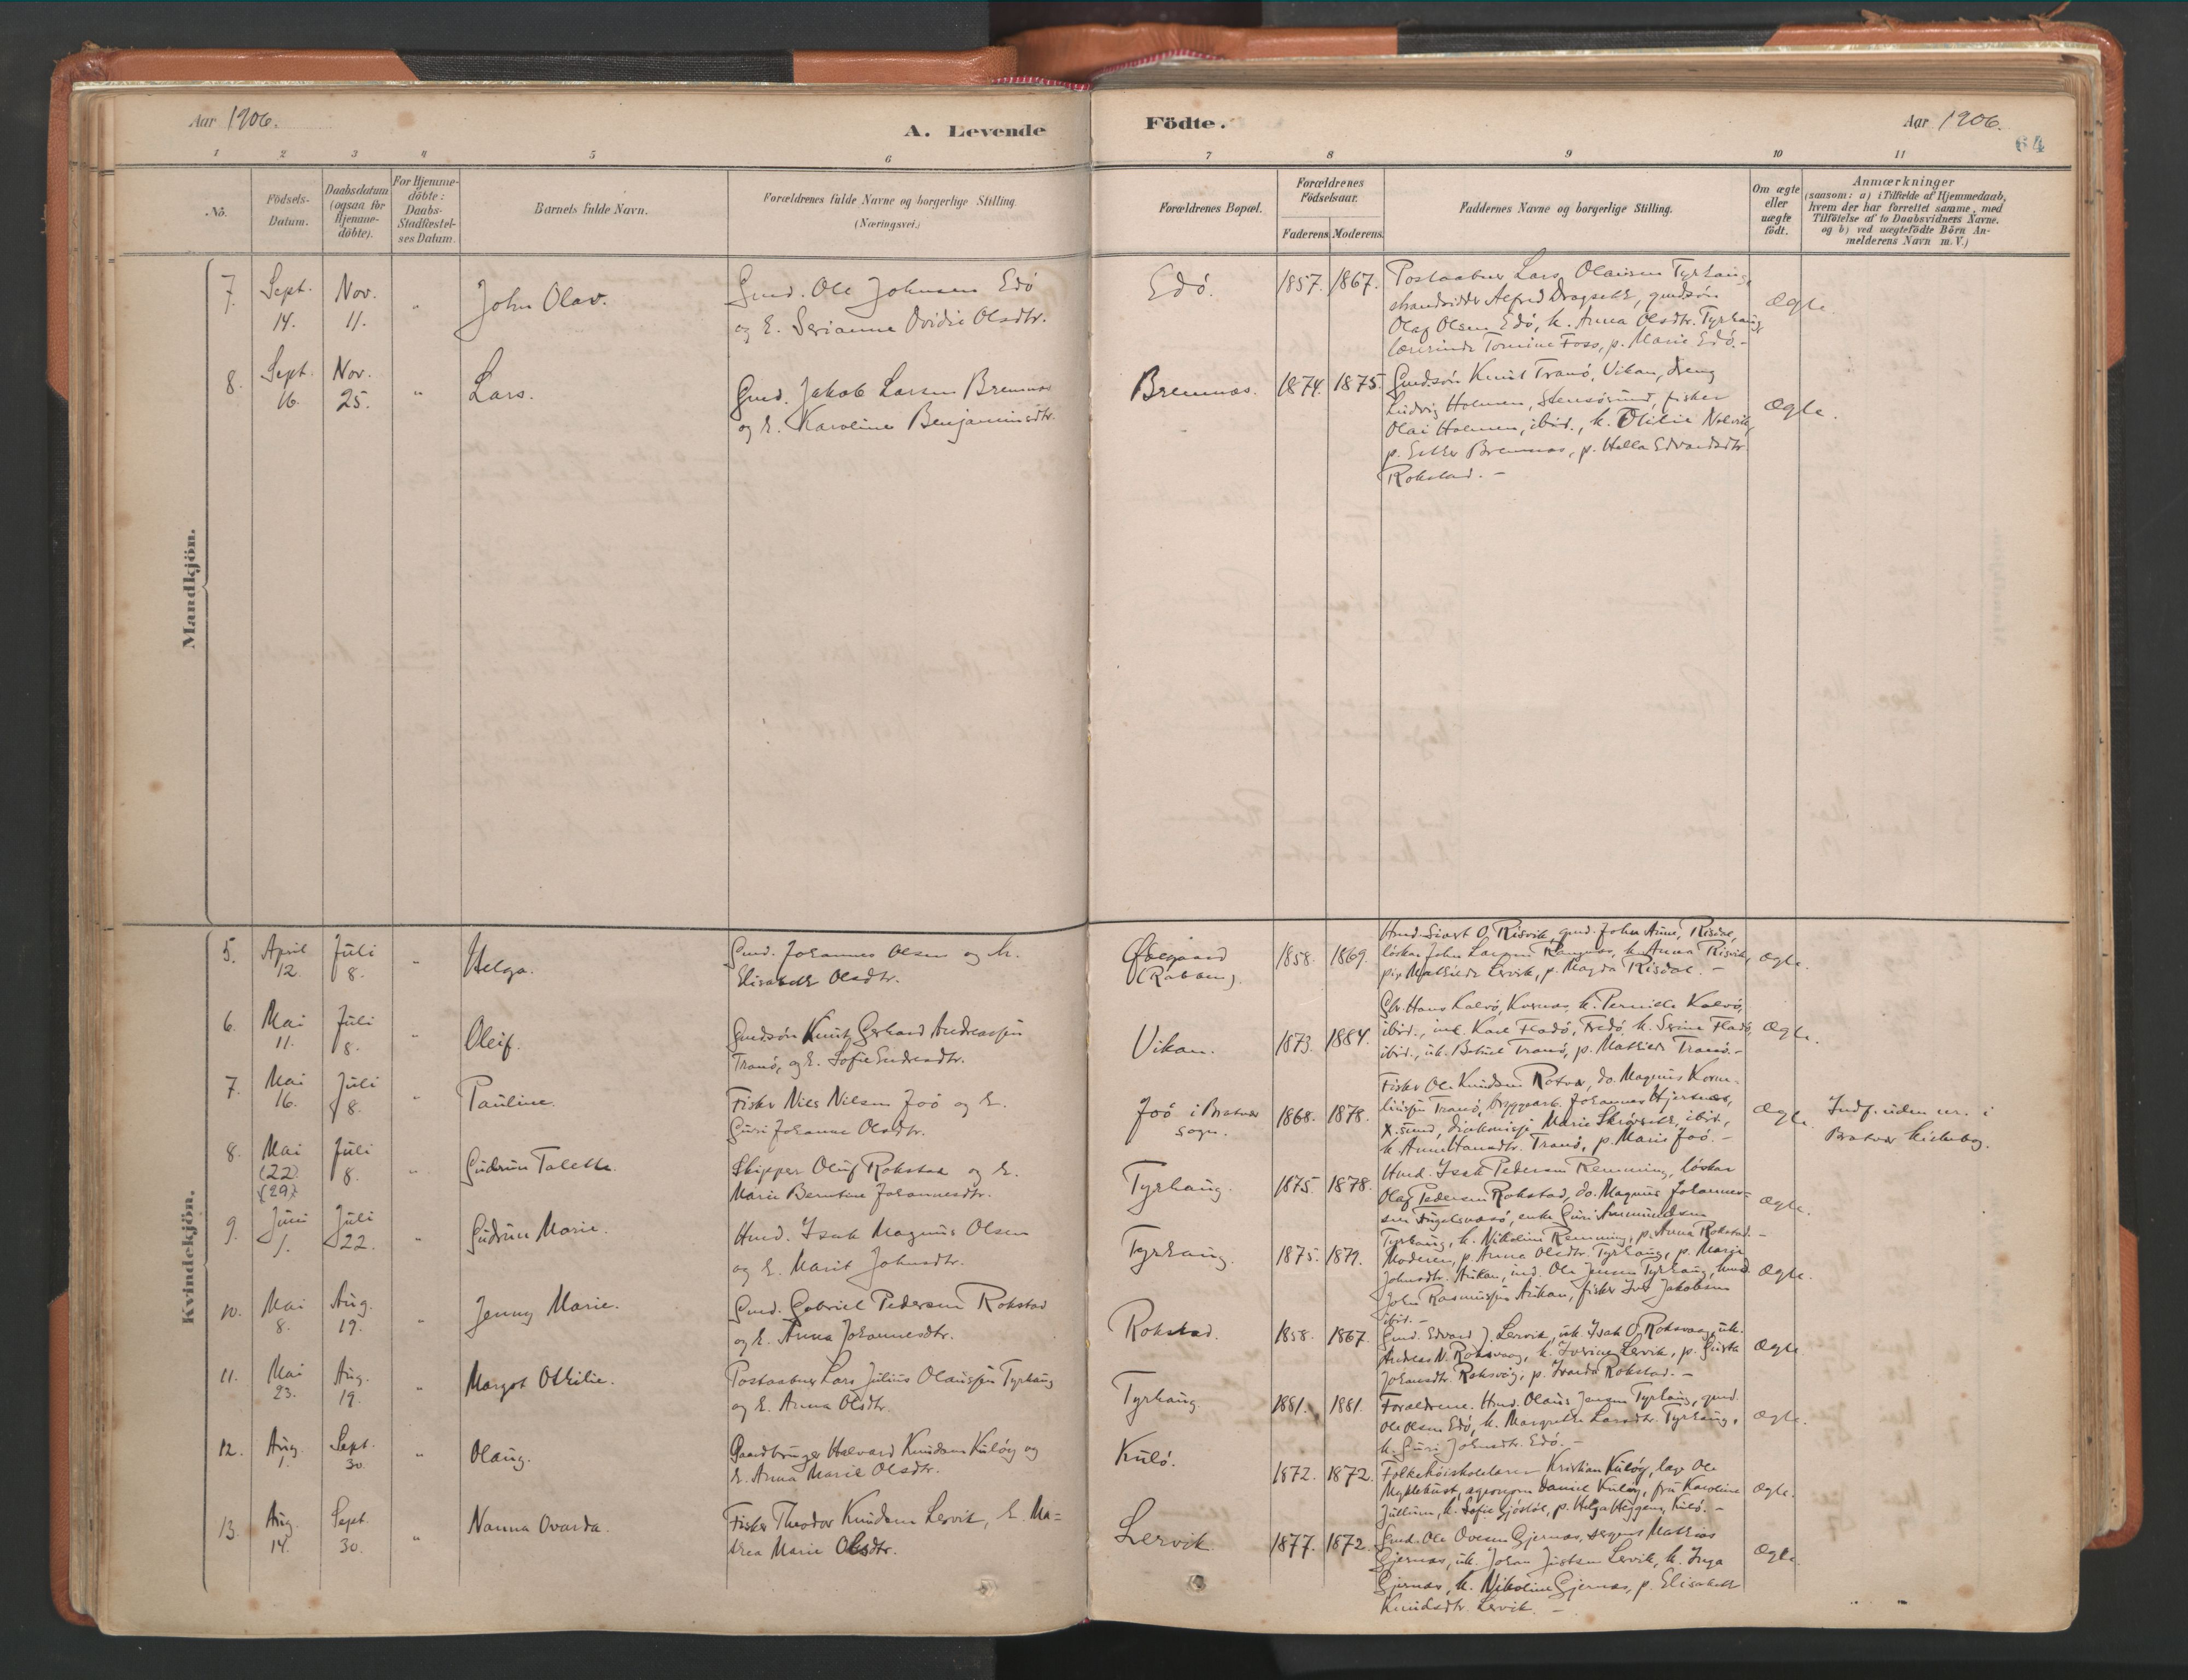 Aar 1906.
A. Levende
Födte.
Aar 1906.
64
1 2 3 4 5 6 7 8 9 10 11
No.
Födsels-
Datum.
Daabsdatum
(ogsaa for
Hjemme-
döbte).
For Hjemme-
döbte:
Daabs-
Stadfæstel-
ses Datum.
Barnets fulde Navn.
Forældrenes fulde Navne og borgerlige Stilling
(Næringsvei.)
Forældrenes Bopæl.
Forældrenes
Födselsaar.
Faderens. Moderens.
Faddernes Navne og borgerlige Stilling.
Om ægte
eller
uægte
födt.
Anmærkninger
(saasom: a) i Tilfælde af Hjemmedaab,
hvem der har forrettet samme, med
Tilföielse af to Daabsvidners Navne.
og b) ved uægtefödte Börn An-
melderens Navn m. V.)
Mandkjön.
7.
Sept.
14.
Nov.
11.
"
John Olav.
Gmd. Ole Johnsen Edö
og E. Serianna Ovidie Olsdtr.
Edö.
1857. 1867.
Postaabner Lars Olausen Tyrhaug,
strandsidder Alfred Dragseth, gmdsön
Olaf Olsen Edö, k. Anna Olsdtr. Tyrhaug,
lærerinde Tomine Foss, p. Marie Edö.-
Ægte.
8.
Sept.
16.
Nov.
25.
"
Lars.
Gmd. Jakob Larsen Bremnes
og E. Karoline Benjaminsdtr.
Bremnæs.
1874. 1875.
Gmdsön Knut Tranö, Vikan, dreng
Ludvig Holmen, Stensösund, fisker
Olai Holmen, ibid., k. Otilie Nelvik,
p. Esther Bremnes, p. Hella Edvardsdtr.
Rokstad. -
Ægte.
Kvindekjön.
5.
April
12.
Juli
8.
"
Helga.
Gmd. Johannes Olsen og h.
Elisabeth Olsdtr.
Ödegaard
(Rabben).
1858. 1869.
Hmd. Sivert O. Risvik, gmd. John Aune, Risdal,
löskar John Larsen, k. Anna Risvik,
pige Mathilde Lervik, p. Magda Risdal. -
Ægte.
6.
Mai
11.
Juli
8.
"
Oleif.
Gmdsön Knut Gerhard Andreassen
Tranö, og E. Sofie Endresdtr.
Vikan.
1873. 1884.
Gbr. Hans Kalvö, Kornes, k. Pernille Kalvö,
ibid., Karl Fladö, Fredö, k. Serine Fladö,
ibid., uk. Tranö, p. Mathilde Tranö.-
Ægte.
7.
Mai
16.
Juli
8.
"
Pauline.
Fisker Nils Nilsen Joö og E.
Guri Johanna Olsdtr.
Joö i Bratvær
sogn.
1868. 1878.
Fisker Ole Knudsen Rotvær, do. Magnus Korne-
liussen Tranö, bryggearb. Johannes Hjertnes,
X.sund, diakonisse Marie Skörseth, ibid.,
k. Anne Hansdtr. Tranö, p. Marie Joö. -
Ægte.
Indf. uden nr. i
Bratvær kirkebog.
8.
Mai
(22)
(29)
Juli
8.
"
Gudrun Talette.
Skipper Oluf Rokstad og E.
Marie Berntine Johannesdtr.
Tyrhaug.
1875. 1878.
Hmd. Isak Pedersen Remming, löskar
Olaf Pedersen Rokstad, do. Magnus Johannes-
sen, enke Guri Amundsen
Tyrhaug, k. Nikoline Remming, p. Anna Rokstad. -
Ægte.
9.
Juni
1.
Juli
22.
"
Gudrun Marie.
Hmd. Isak Magnus Olsen
og E. Marit Johnsdtr.
Tyrhaug.
1875. 1879.
Moderen, p. Anna Olsdtr. Tyrhaug, p. Marie
Johnsdtr. Aukan, ind. Ole Jensen Tyrhaug, hmd.
John Rasmussen Aukan, fisker Iver Jakobsen
ibid. -
Ægte.
10.
Mai
8.
Aug.
19.
"
Jenny Marie.
Gmd. Gabriel Pedersen Rokstad
og E. Anna Johannesdtr.
Rokstad.
1858. 1867.
Gmd. Edvard J. Lervik, uk. Isak O. Roksvaag, uk.
Andreas N. Roksvaag, k. Iverine Lervik, p. Gurta
Johansdtr. Roksvåg, p. Ivarda Rokstad. -
Ægte.
11.
Mai
23.
Aug.
19.
"
Margot Othilie.
Postaabner Lars Julius Olaussen Tyrhaug
og E. Anna Olsdtr.
Tyrhaug
1881. 1881.
Forældrene. Hmd. Olaus Jensen Tyrhaug, gmd.
Ole Olsen Edö, k. Margrethe Larsdtr. Tyrhaug,
k. Guri Johnsdtr. Edö. -
Ægte.
12.
Aug.
1.
Sept.
30.
"
Olaug.
Gaardbruger Halvard Knudsen Kulöy og
E. Anna Marie Olsdtr.
Kulö.
1872. 1872.
Folkehöiskolelærer Kristian Kulöy, læge Ole
Myklebust, agronom Daniel Kulöy, fru Karoline
Jullum, k. Sofie Gjöstöl, p. Helga Heggem, Kulö. -
Ægte.
13.
Aug.
14.
Sept.
30.
"
Nanna Ovarda.
Fisker Theodor Knudsen Lervik, E. Ma-
Marie Olsdtr.
Lervik.
1877. 1872.
Gmd. Ole Ovesen Gjernes, sergent Mathias
Gjernes, uk. Johan Justsen Lervik, k. Inga
Gjernes, k. Nikoline Gjernes, p. Elisabeth
Knudsdtr. Lervik. -
Ægte.